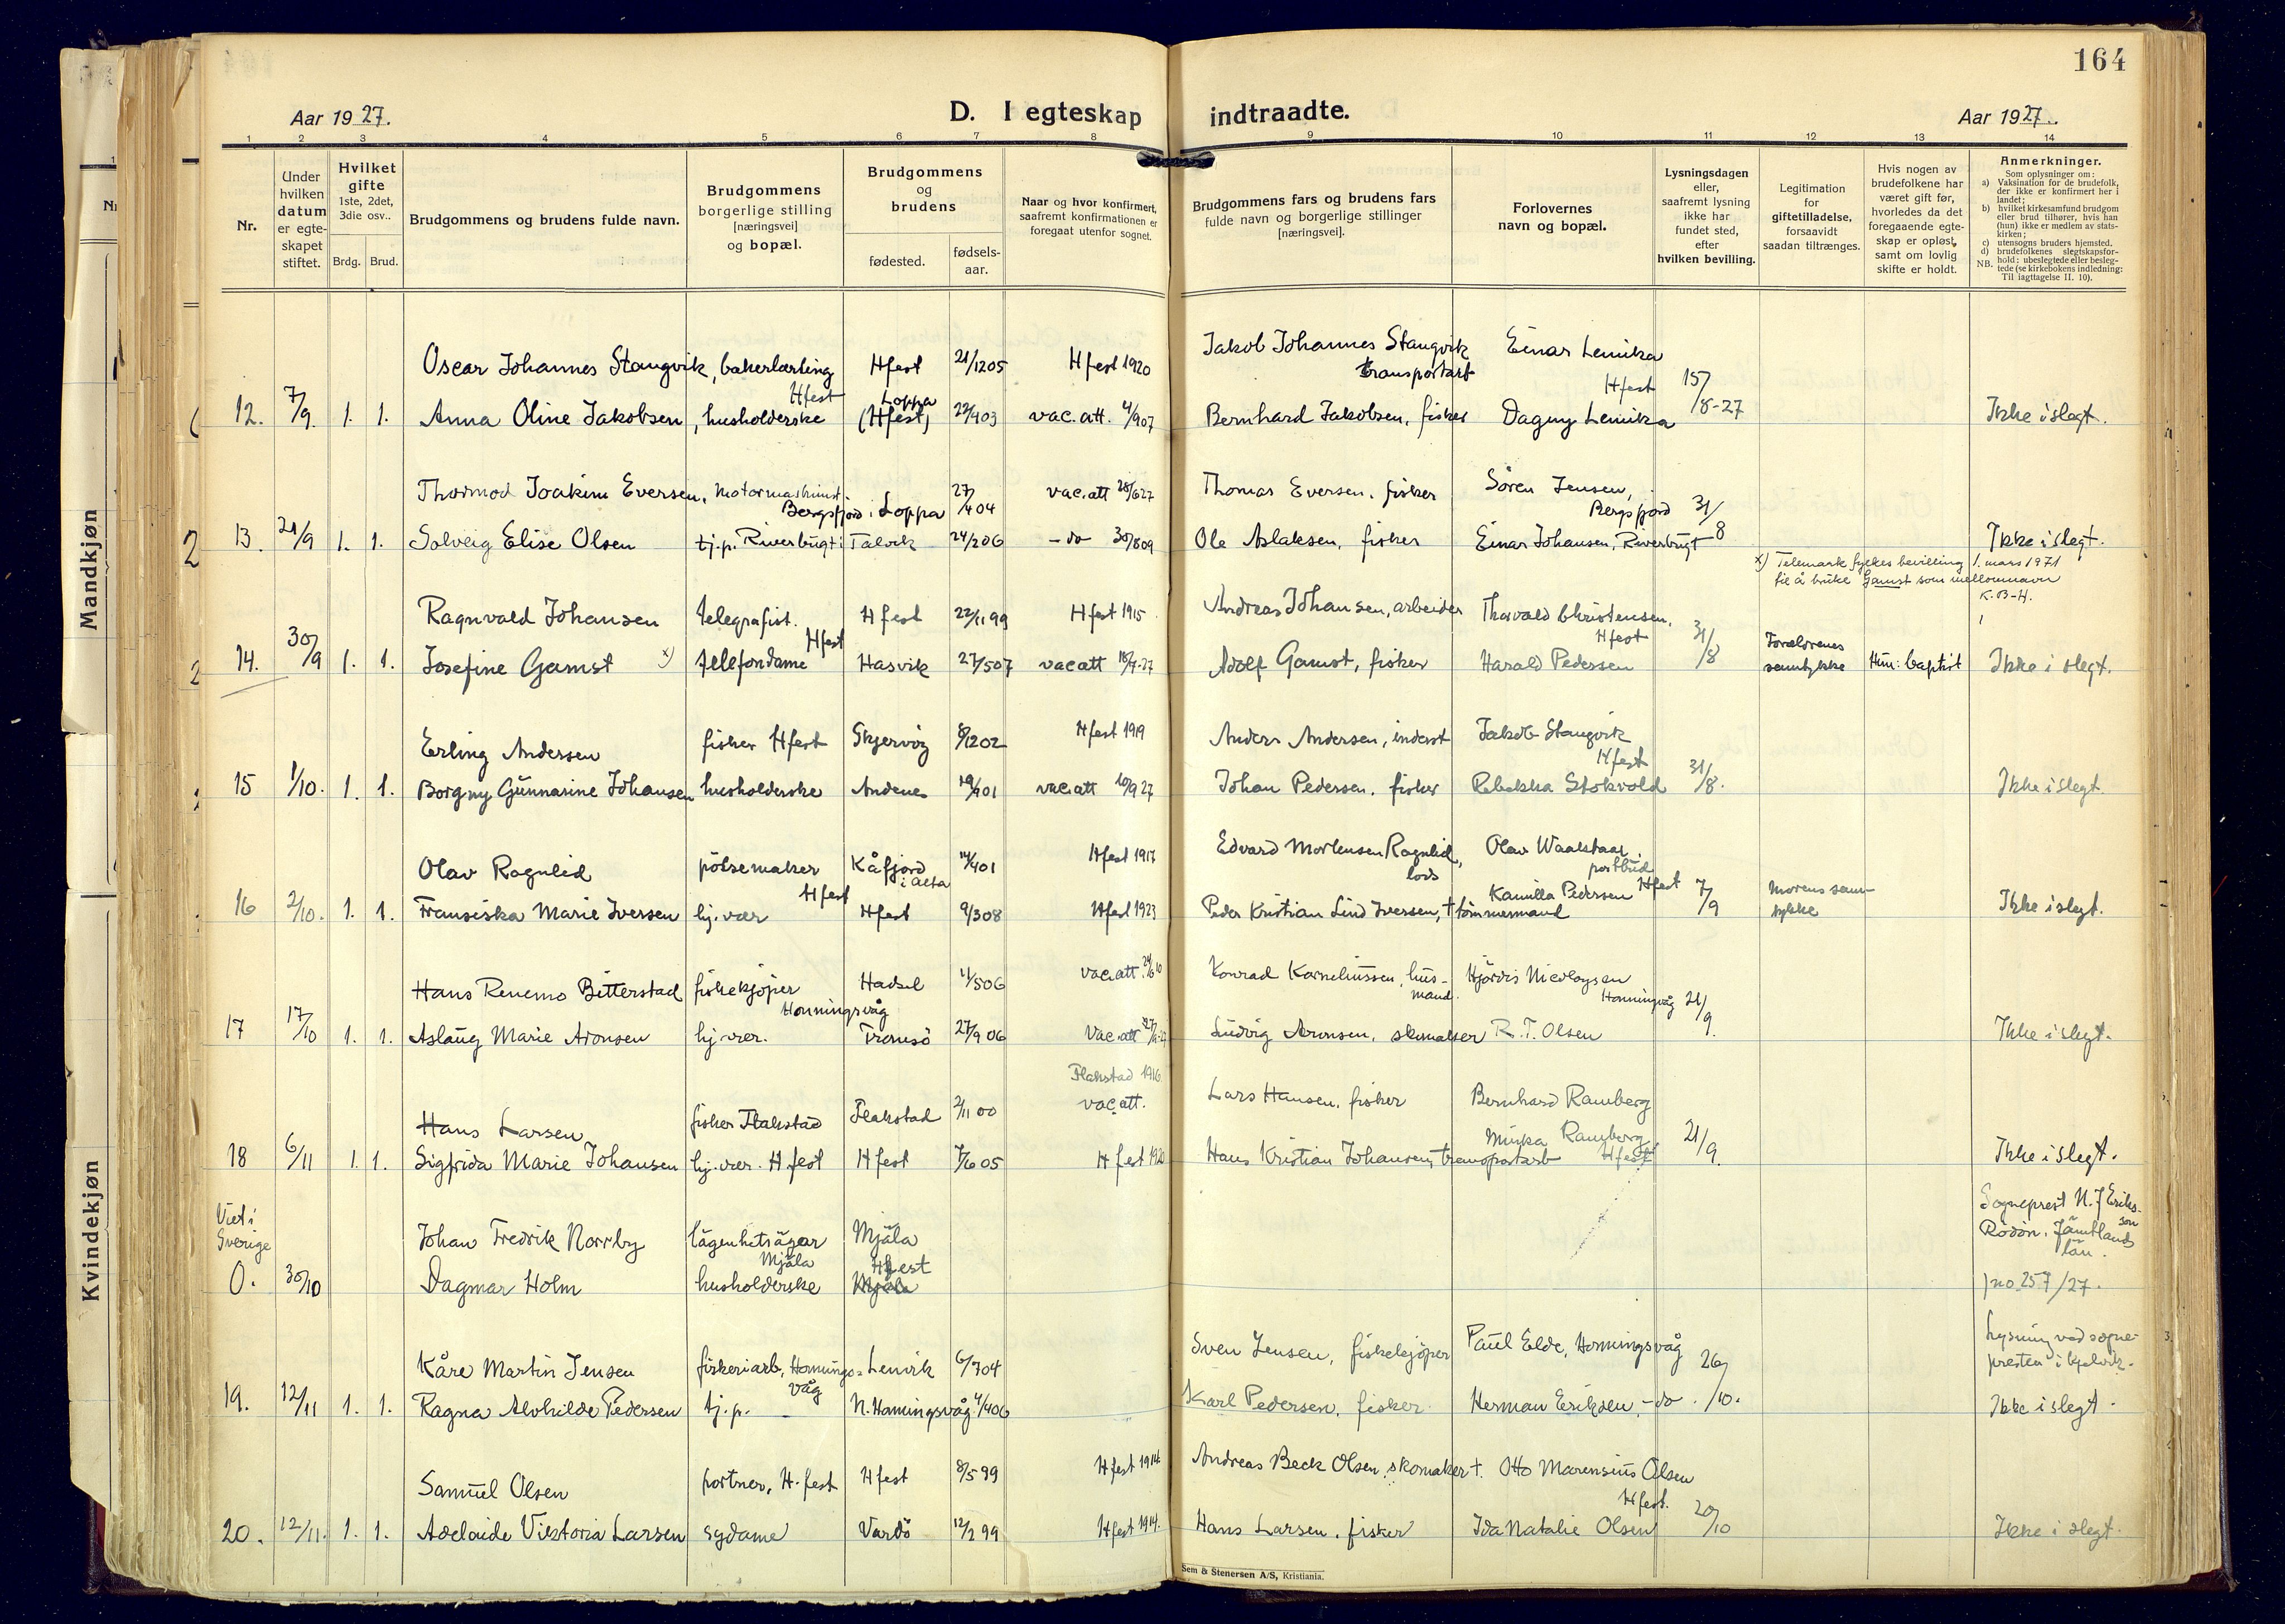 164
Aar 1927.
D. I egteskap indtraadte.
Aar 1927.
1 2 3 4 5 6 7 8 9 10 11 12 13 14
Nr.
Under hvilken datum er egteskapet stiftet.
Hvilket gifte 1ste, 2det, 3die osv..
Brdg. Brud.
Brudgommens og brudens fulde navn.
Brudgommens borgerlige stilling [næringsvei] og bopæl.
Brudgommens og brudens
fødested.
fødsels-aar.
Naar og hvor konfirmert, saafremt konfirmationen er foregaat utenfor sognet.
Brudgommens fars og brudens fars fulde navn og borgerlige stillinger [næringsvei].
Forlovernes navn og bopæl.
Lysningsdagen eller, saafremt lysning ikke har fundet sted, efter hvilken bevilling.
Legitimation for giftetilladelse, forsaavidt saadan tiltrænges.
Hvis nogen av brudefolkene har været gift før, hvorledes da det foregaaende egteskap er opløst, samt om lovlig skifte er holdt.
Anmerkninger.
Som oplysninger om:
a) Vaksination for de brudefolk, der ikke er konfirmert her i landet;
b) hvilket kirkesamfund brudgom eller brud tilhører, hvis han (hun) ikke er medlem av statskirken;
c) utensogns bruders hjemsted.
d) brudefolkenes slegtskapsforhold: ubeslegtede eller beslegtede (se kirkebokens indledning: Til iagttagelse II. 10).
NB.
Oscar Johannes Stangvik, bakerlærling Hfest Hfest 21/12 05 Hfest 1920 Jakob Johannes Stangvik transportarb Einar Lemika Hfest
12. 7/9. 1. 1. Anna Oline Jakobsen, husholderske Loppa (Hfest) 22/9 03 vac. att. 4/9 07 Bernhard Jakobsen, fisker Dagny Lemika 15/8-27 Ikke i slegt.
Thormod Joakim Eversen, motormaskinist Bergsfjord i Loppa 27/4 04 vac. att 28/6 27 Thomas Eversen, fisker Sören Jensen, Bergsfjord
13. 21/9 1. 1. Solveig Elise Olsen tj.p. Riverbugt i Talvik 24/2 06 - do 30/8 09 Ole Aslaksen, fisker Einar Johansen, Riverbugt 31/8 Ikke i slegt.
x) Telemark fylkes bevilling 1. mars 1971
til å bruke Gamst som mellomnavn
K.B-H.
Ragnvald Johansen telegrafist. Hfest Hfest 22/11 99 Hfest 1915 Andreas Johansen, arbeider Thorvald Christensen, Hfest
14. 30/9 1. 1. Josefine Gamst x) telefondame Hasvik 27/5 07 vac att 18/9-27 Adolf Gamst, fisker Harald Pedersen 31/8 Forældrenes samtykke Hun: baptist Ikke i slegt.
Erling Andersen fisker Hfest Skjervöy 8/12 02 Hfest 1919 Anders Andersen, inderst Jakob Stangvik Hfest
15 1/10. 1. 1. Borgny Gunnarine Johansen husholderske Andenes 19/9 01 vac. att 10/9 27 Johan Pedersen, fisker Rebekka Stokvold 31/8. Ikke i slegt.
Olav Rognlid pölsemaker Hfest Kåfjord i Alta 14/4 01 Hfest 1917 Edvard Mortensen Rognlid, lods Olav Waalstaar, postbud
16 2/10. 1. 1. Fransiska Marie Iversen hj. vær Hfest 9/3 08 Hfest 1923 Peder Kristian Lind Iversen, † tömmermand Kamilla Pedersen Hfest 7/9 Morens samtykke Ikke i slegt.
Hans Renemo Bitterstad fiskekjøper Honningsvåg Hadsel 11/5 06 vac. att. Konrad Korneliussen, husmand. Hjördis Nicolaysen Honningvåg
17 17/10 1. 1. Aslaug Marie Aronsen hj. vær. Tromsö 27/9 06 vac. att Ludvig Aronsen, R.T. Olsen 21/9. Ikke i slegt.
Flakstad 1916
Hans Larsen fisker Flakstad Flakstad 2/11 00 vac. att. Lars Hansen, fisker Bernhard Ramberg
18 6/11 1. 1. Sigfrida Marie Johansen hj. vær. Hfest Hfest 7/6 05 Hfest 1920 Hans Kristian Johansen, transportarb Minka Ramberg Hfest 21/9. Ikke i slegt.
Viet i Sverige Johan Fredrik Norrby lägenhetsägar Mjäla Mjäla Sogneprest N. J Eriksson Rödön, Jämtlands län.
0. 30/10 Dagmar Holm husholderske Hfest Mjäla jno. 257/27.
Kåre Martin Jensen fiskeriarb, Honningsvåg Lenvik 6/7 04 Sven Jensen, fiskekjöper Paul Elde, Honningsvåg Lysning ved sognepresten i Kjelvik.
19. 12/11 1. 1. Ragna Alvhilde Pedersen tj.p. - N. Honingsvåg 4/4 06 Karl Pedersen, fisker Herman Eriksen, - do 26/10. Ikke i slegt.
Samuel Olsen portner, H.fest Hfest 8/5 99 Hfest 1914 Andreas Beck Olsen, skomaker †. Otto Marensius Olsen Hfest.
20. 12/11. 1. 1. Adelaide Viktoria Larsen sydame Vardö 12/2 99 Hfest 1914. Hans Larsen, fisker Ida Natalie Olsen 20/10 Ikke i slegt.
Sem & Stenersen A/S, Kristiania.
Mandkjøn
Kvindekjøn